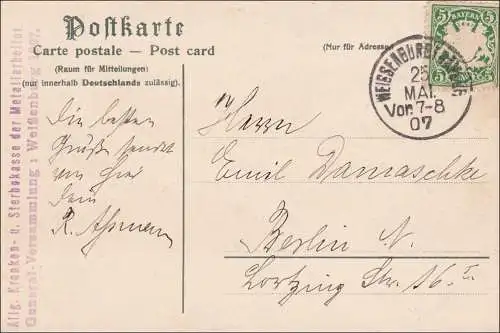 Postkarte
Carte postale — Post card
(Raum für Mitteilungen)
(nur innerhalb Deutschlands zulässig).
(Nur für Adresse
5 BAYERN 5
WEISSENBURG
25
MAI.
Vor. 7-8
07
Allg. Kranken- u. Sterbekasse der Metallarbeiter
General-Versammlung : Weißenburg 1907.
Die besten
Grüße sendet
von hier
dein
R. Assmann
Herrn
Emil Damaschke
Berlin N.
Lortzing Str. 16 I